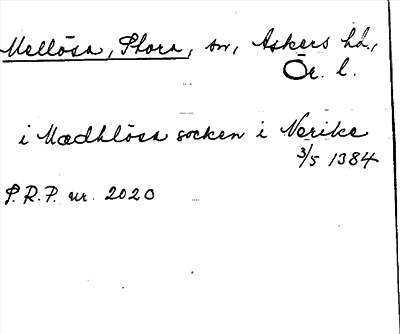 Mellösa, Stora, sn, Askers hd.,
Ör. l.
i Mædhløsa socken i Nerike
3/5 1384
S.R.P. nr. 2020